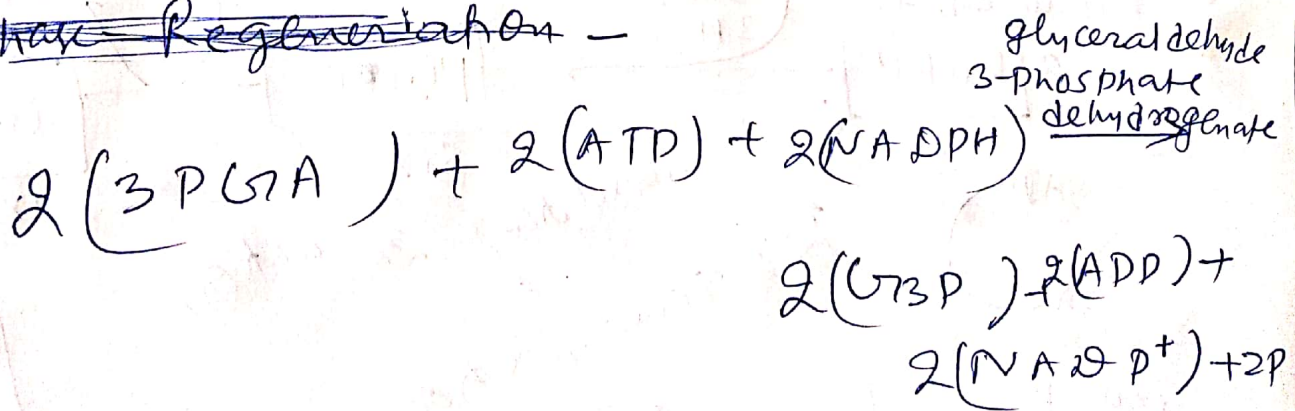 Regeneriation -
glyceraldehyde
3-Phosphate
dehydrogenate
2(3PGA) + 2(ATP) + 2(NADPH)
2(G3P)+2(ADP)+
2(NADP+)+2P